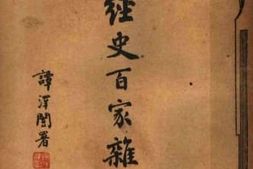 經史百家雜
譚澤闓署